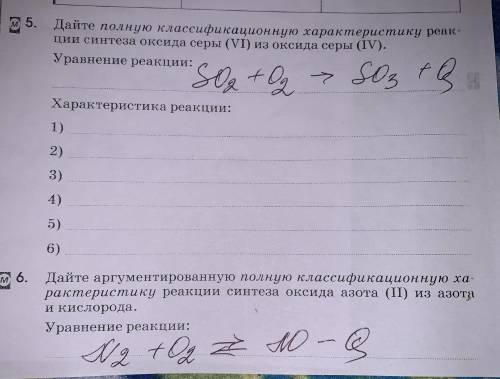 М 5. Дайте полную классификационную характеристику реак-
ции синтеза оксида серы (VI) из оксида серы (IV).
Уравнение реакции:
SO₂ + O₂ → SO₃ + Q
Характеристика реакции:
1)
2)
3)
4)
5)
6)
М 6. Дайте аргументированную полную классификационную ха-
рактеристику реакции синтеза оксида азота (II) из азота
и кислорода.
Уравнение реакции:
N₂ + O₂ ⇄ NO − Q